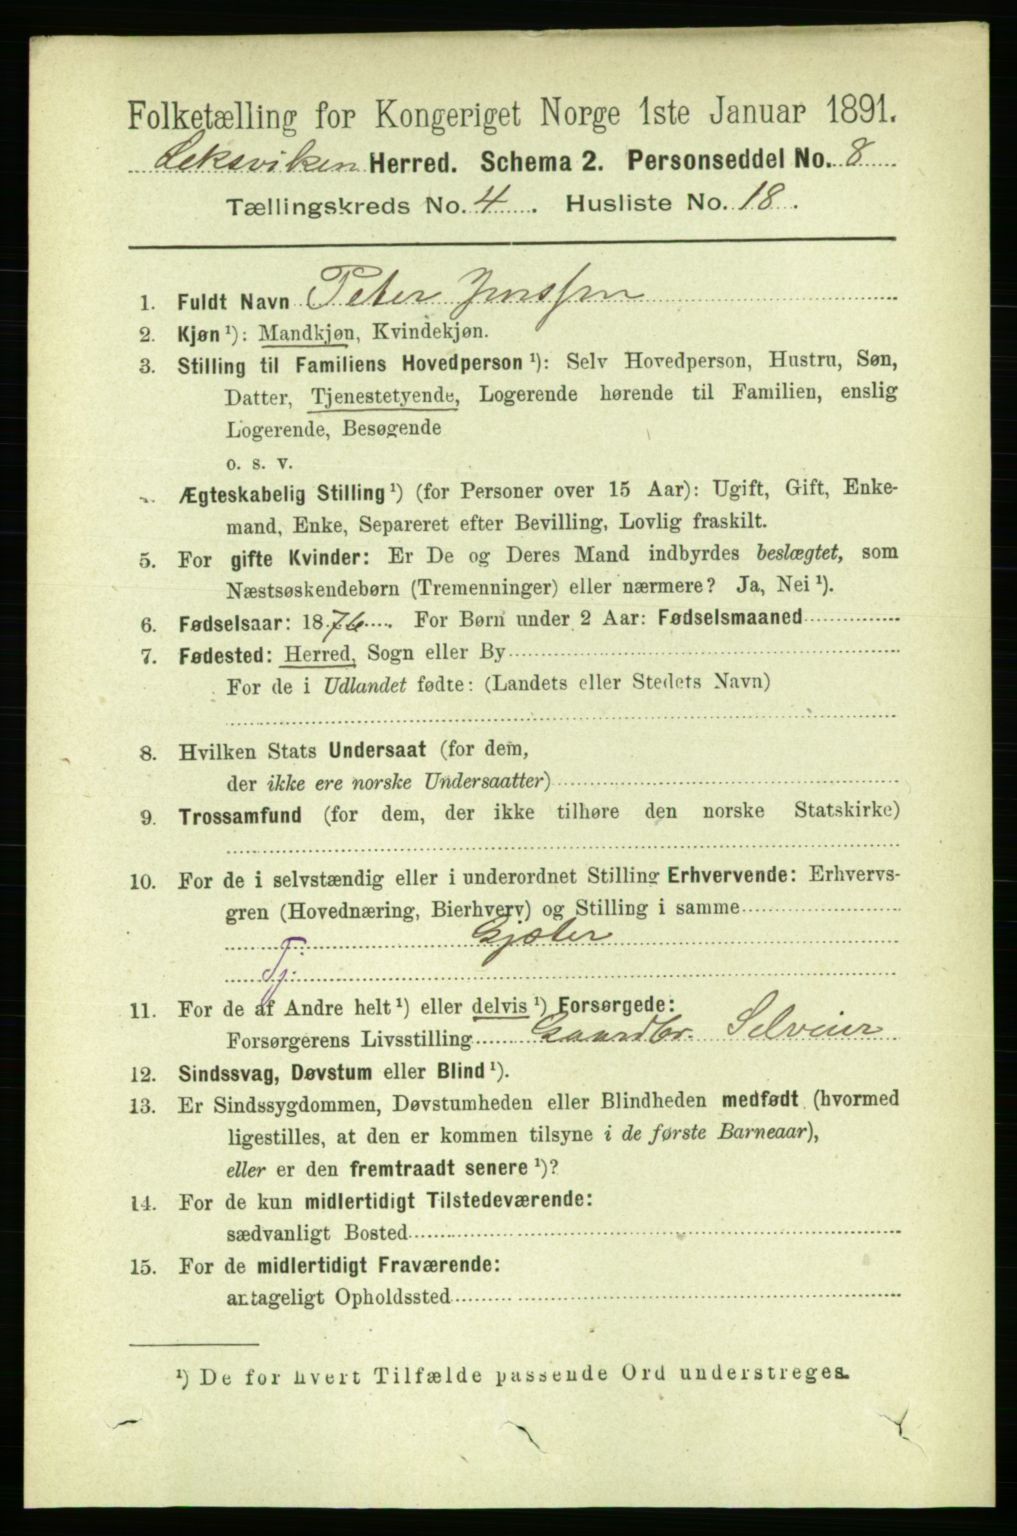 Folketælling for Kongeriget Norge 1ste Januar 1891.
Leksviken Herred. Schema 2. Personseddel No. 8
Tællingskreds No. 4. Husliste No. 18.
1. Fuldt Navn Peter Jenssen
2. Kjøn ¹): Mandkjøn, Kvindekjøn.
3. Stilling til Familiens Hovedperson ¹): Selv Hovedperson, Hustru, Søn,
Datter, Tjenestetyende, Logerende hørende til Familien, enslig
Logerende, Besøgende
o. s. v.
Ægteskabelig Stilling ¹) (for Personer over 15 Aar): Ugift, Gift, Enke-
mand, Enke, Separeret efter Bevilling, Lovlig fraskilt.
5. For gifte Kvinder: Er De og Deres Mand indbyrdes beslægtet, som
Næstsøskendebørn (Tremenninger) eller nærmere? Ja, Nei ¹).
6. Fødselsaar: 1876. For Børn under 2 Aar: Fødselsmaaned
7. Fødested: Herred, Sogn eller By
For de i Udlandet fødte: (Landets eller Stedets Navn)
8. Hvilken Stats Undersaat (for dem,
der ikke ere norske Undersaatter)
9. Trossamfund (for dem, der ikke tilhøre den norske Statskirke)
10. For de i selvstændig eller i underordnet Stilling Erhvervende: Erhvervs-
gren (Hovednæring, Bierhverv) og Stilling i samme
Gjæter
Tj:
11. For de af Andre helt ¹) eller delvis ¹) Forsørgede:
Forsørgerens Livsstilling Gaardbr. Selveier
12. Sindssvag, Døvstum eller Blind ¹).
13. Er Sindssygdommen, Døvstumheden eller Blindheden medfødt (hvormed
ligestilles, at den er kommen tilsyne i de første Barneaar),
eller er den fremtraadt senere ¹)?
14. For de kun midlertidigt Tilstedeværende:
sædvanligt Bosted
15. For de midlertidigt Fraværende:
antageligt Opholdssted
¹) De for hvert Tilfælde passende Ord understreges.